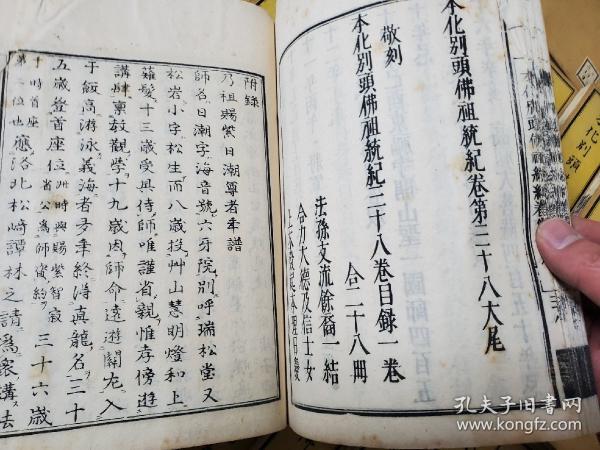 本化別頭佛祖統紀卷第二十八大尾
敬刻
本化別頭佛祖統紀二十八卷目録一卷
合二十八冊
法孫支流餘裔一結
合力大德及信士女
附錄
乃祖賜紫日潮尊者年譜
師名日潮字海音號六牙院別呼瑞松堂又
松岩小字松生而八歲投艸山慧明燈和上
薙髮十三歲受具侍師唯謹省親惟孝傍遊
講肆稟教觀學十九歲因師命遠遊關左入
于飯高游泳義海者多年終得真龍名三十
五歲登首座位
此時興賜紫智寂
省公為師資約
三十六歲
十時首座
第一位也
應洛北松崎譚林之請為眾講法
化別頭
孔夫子旧书网
www.kongfz.com